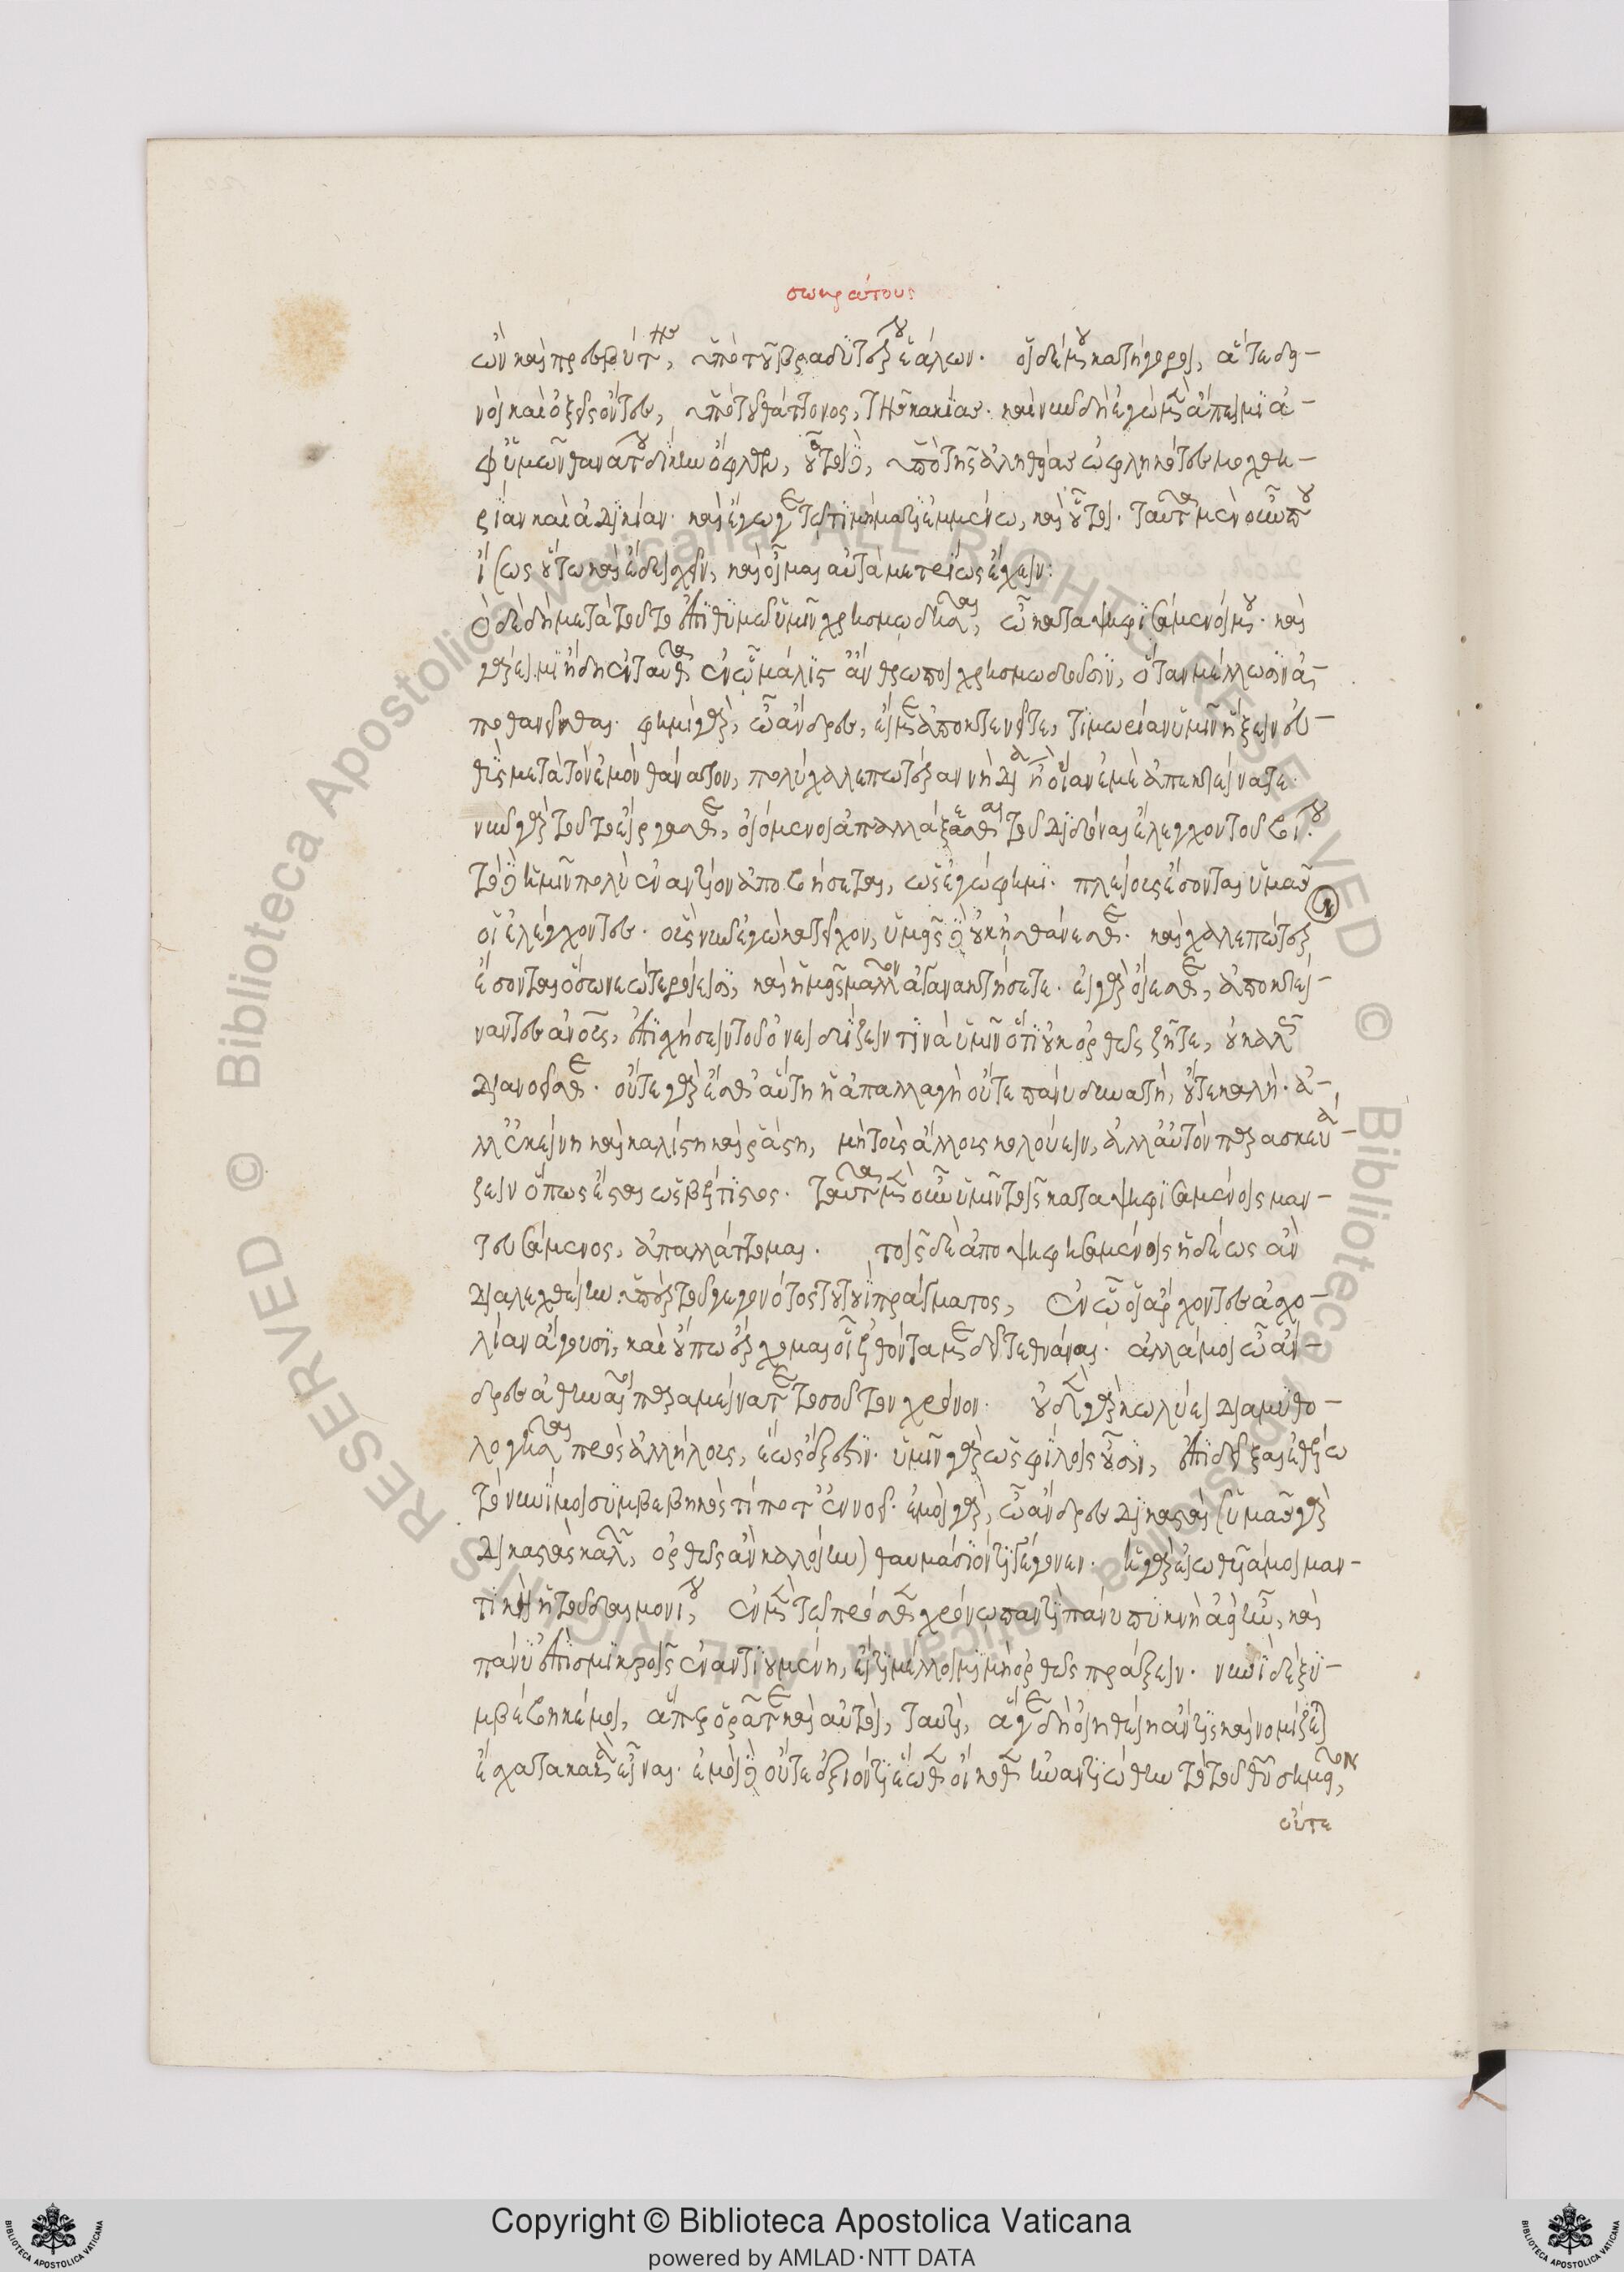 σωκράτους
ὢν καὶ πρεσβύτης, ὑπὸ τοῦ βραδυτέρου ἑάλων. οἱ δέ μου κατήγοροι, ἅτε δει-
νοὶ καὶ ὀξεῖς ὄντες, ὑπὸ τοῦ θάττονος, τῆς κακίας. καὶ νῦν δὴ ἐγὼ μὲν ἄπειμι ὑ-
φ' ὑμῶν θανάτου δίκην ὄφλων, οὗτοι δὲ, ὑπὸ τῆς ἀληθείας ὠφληκότες μοχθη-
ρίαν καὶ ἀδικίαν. καὶ ἔγωγε τῷ τιμήματι ἐμμένω, καὶ οὗτοι. ταῦτα μὲν οὖν που
ἴσως οὕτω καὶ ἔδει σχεῖν, καὶ οἶμαι αὐτὰ μετρίως ἔχειν:
ὃ δὲ δὴ μετὰ τοῦτο ἐπιθυμῶ ὑμῖν χρησμῳδῆσαι, ὦ καταψηφισάμενοί μου. καὶ
γάρ εἰμι ἤδη ἐνταῦθα ἐν ᾧ μάλιστ' ἄνθρωποι χρησμῳδοῦσιν, ὅταν μέλλωσιν ἀ-
ποθανεῖσθαι. φημὶ γὰρ, ὦ ἄνδρες, εἰ ἐμὲ ἀποκτενεῖτε, τιμωρίαν ὑμῖν ἥξειν εὐ-
θὺς μετὰ τὸν ἐμὸν θάνατον, πολὺ χαλεπωτέραν νὴ Δία ἢ οἵαν ἐμὲ ἀπεκτείνατε.
νῦν γὰρ τοῦτο εἴργασθε, οἰόμενοι ἀπαλλάξεσθαι τοῦ διδόναι ἔλεγχον τοῦ βίου.
τὸ δὲ ὑμῖν πολὺ ἐναντίον ἀποβήσεται, ὡς ἐγώ φημι. πλείους ἔσονται ὑμᾶς
οἱ ἐλέγχοντες. οὓς νῦν ἐγὼ κατεῖχον, ὑμεῖς δὲ οὐκ ᾐσθάνεσθε. καὶ χαλεπώτεροι
ἔσονται ὅσῳ νεώτεροί εἰσι, καὶ ὑμεῖς μᾶλλον ἀγανακτήσετε. εἰ γὰρ οἴεσθε, ἀποκτεί-
ναντες ἀνθρώπους, ἐπισχήσειν τοῦ ὀνειδίζειν τινὰ ὑμῖν ὅτι οὐκ ὀρθῶς ζῆτε, οὐ καλῶς
διανοεῖσθε. οὔτε γάρ ἐσθ' αὕτη ἡ ἀπαλλαγὴ οὔτε πάνυ δυνατὴ, οὔτε καλή. ἀ-
λλ' ἐκείνη καὶ καλίστη καὶ ῥάστη, μὴ τοὺς ἄλλους κολούειν, ἀλλ' αὐτὸν παρασκευά-
ζειν ὅπως ἔσται ὡς βέλτιστος. ταῦτα μὲν οὖν ὑμῖν τοῖς καταψηφισαμένοις μαν-
τευσάμενος, ἀπαλλάττομαι. τοῖς δὲ ἀποψηφισαμένοις ἡδέως ἂν
διαλεχθείην ὑπὲρ τοῦ γεγονότος τουτουῒ πράγματος, ἐν ᾧ οἱ ἄρχοντες ἀσχο-
λίαν ἄγουσι, καὶ οὔπω ἔρχομαι οἷ ἐλθόντα με δεῖ τεθνάναι. ἀλλά μοι ὦ ἄν-
δρες ἀθηναῖοι παραμείνατε τοσοῦτον χρόνον. οὐδὲν γὰρ κωλύει διαμυθο-
λογῆσαι πρὸς ἀλλήλους, ἕως ἔξεστιν. ὑμῖν γὰρ ὡς φίλοις οὖσιν, ἐπιδεῖξαι ἐθέλω
τὸ νυνί μοι συμβεβηκὸς τί ποτ' ἐννοεῖ. ἐμοὶ γὰρ, ὦ ἄνδρες δικασταὶ (ὑμᾶς γὰρ
δικαστὰς καλῶν, ὀρθῶς ἂν καλοίην) θαυμάσιόν τι γέγονεν. ἡ γὰρ εἰωθυῖά μοι μαν-
τικὴ ἡ τοῦ δαιμονίου, ἐν μὲν τῷ πρόσθεν χρόνῳ παντὶ πάνυ πυκνὴ ἀεὶ ἦν, καὶ
πάνυ ἐπὶ σμικροῖς ἐναντιουμένη, εἴ τι μέλλοιμι μὴ ὀρθῶς πράξειν. νυνὶ δὲ ξυ-
μβέβηκέ μοι, ἅπερ ὁρᾶτε καὶ αὐτοὶ, ταυτὶ, ἅ γε δὴ οἰηθείη ἄν τις καὶ νομίζεται
ἔσχατα κακῶν εἶναι. ἐμοὶ δὲ οὔτε ἐξιόντι ἕωθεν οἴκοθεν ἠναντιώθη τὸ τοῦ θεοῦ σημεῖον,
οὔτε